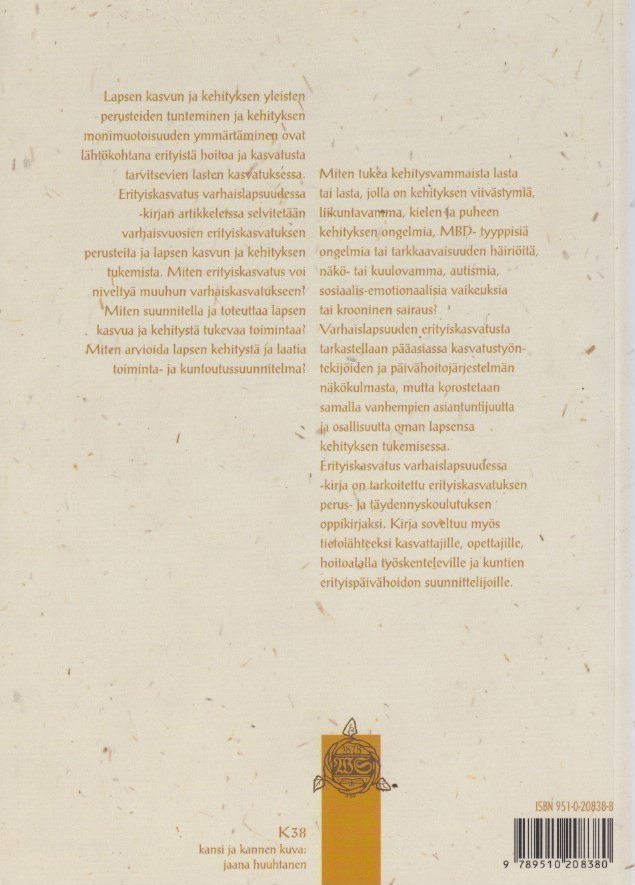 Lapsen kasvun ja kehityksen yleisten
perusteiden tunteminen ja kehityksen
monimuotoisuuden ymmärtäminen ovat
lähtökohtana erityistä hoitoa ja kasvatusta
tarvitsevien lasten kasvatuksessa.
Erityiskasvatus varhaislapsuudessa
-kirjan artikkeleissa selvitetään
varhaisvuosien erityiskasvatuksen
perusteita ja lapsen kasvun ja kehityksen
tukemista. Miten erityiskasvatus voi
niveltyä muuhun varhaiskasvatukseen?
Miten suunnitella ja toteuttaa lapsen
kasvua ja kehitystä tukevaa toimintaa?
Miten arvioida lapsen kehitystä ja laatia
toiminta- ja kuntoutussuunnitelma?
Miten tukea kehitysvammaista lasta
tai lasta, jolla on kehityksen viivästymiä,
liikuntavamma, kielen ja puheen
kehityksen ongelmia, MBD- tyyppisiä
ongelmia tai tarkkaavaisuuden häiriöitä,
näkö- tai kuulovamma, autismia,
sosiaalis-emotionaalisia vaikeuksia
tai krooninen sairaus?
Varhaislapsuuden erityiskasvatusta
tarkastellaan pääasiassa kasvatustyön-
tekijöiden ja päivähoitojärjestelmän
näkökulmasta, mutta korostetaan
samalla vanhempien asiantuntijuutta
ja osallisuutta oman lapsensa
kehityksen tukemisessa.
Erityiskasvatus varhaislapsuudessa
-kirja on tarkoitettu erityiskasvatuksen
perus- ja täydennyskoulutuksen
oppikirjaksi. Kirja soveltuu myös
tietolähteeksi kasvattajille, opettajille,
hoitoalalla työskenteleville ja kuntien
erityispäivähoidon suunnittelijoille.
1878
WS
K38
kansi ja kannen kuva:
jaana huuhtanen
ISBN 951-0-20838-8
9 789510 208380